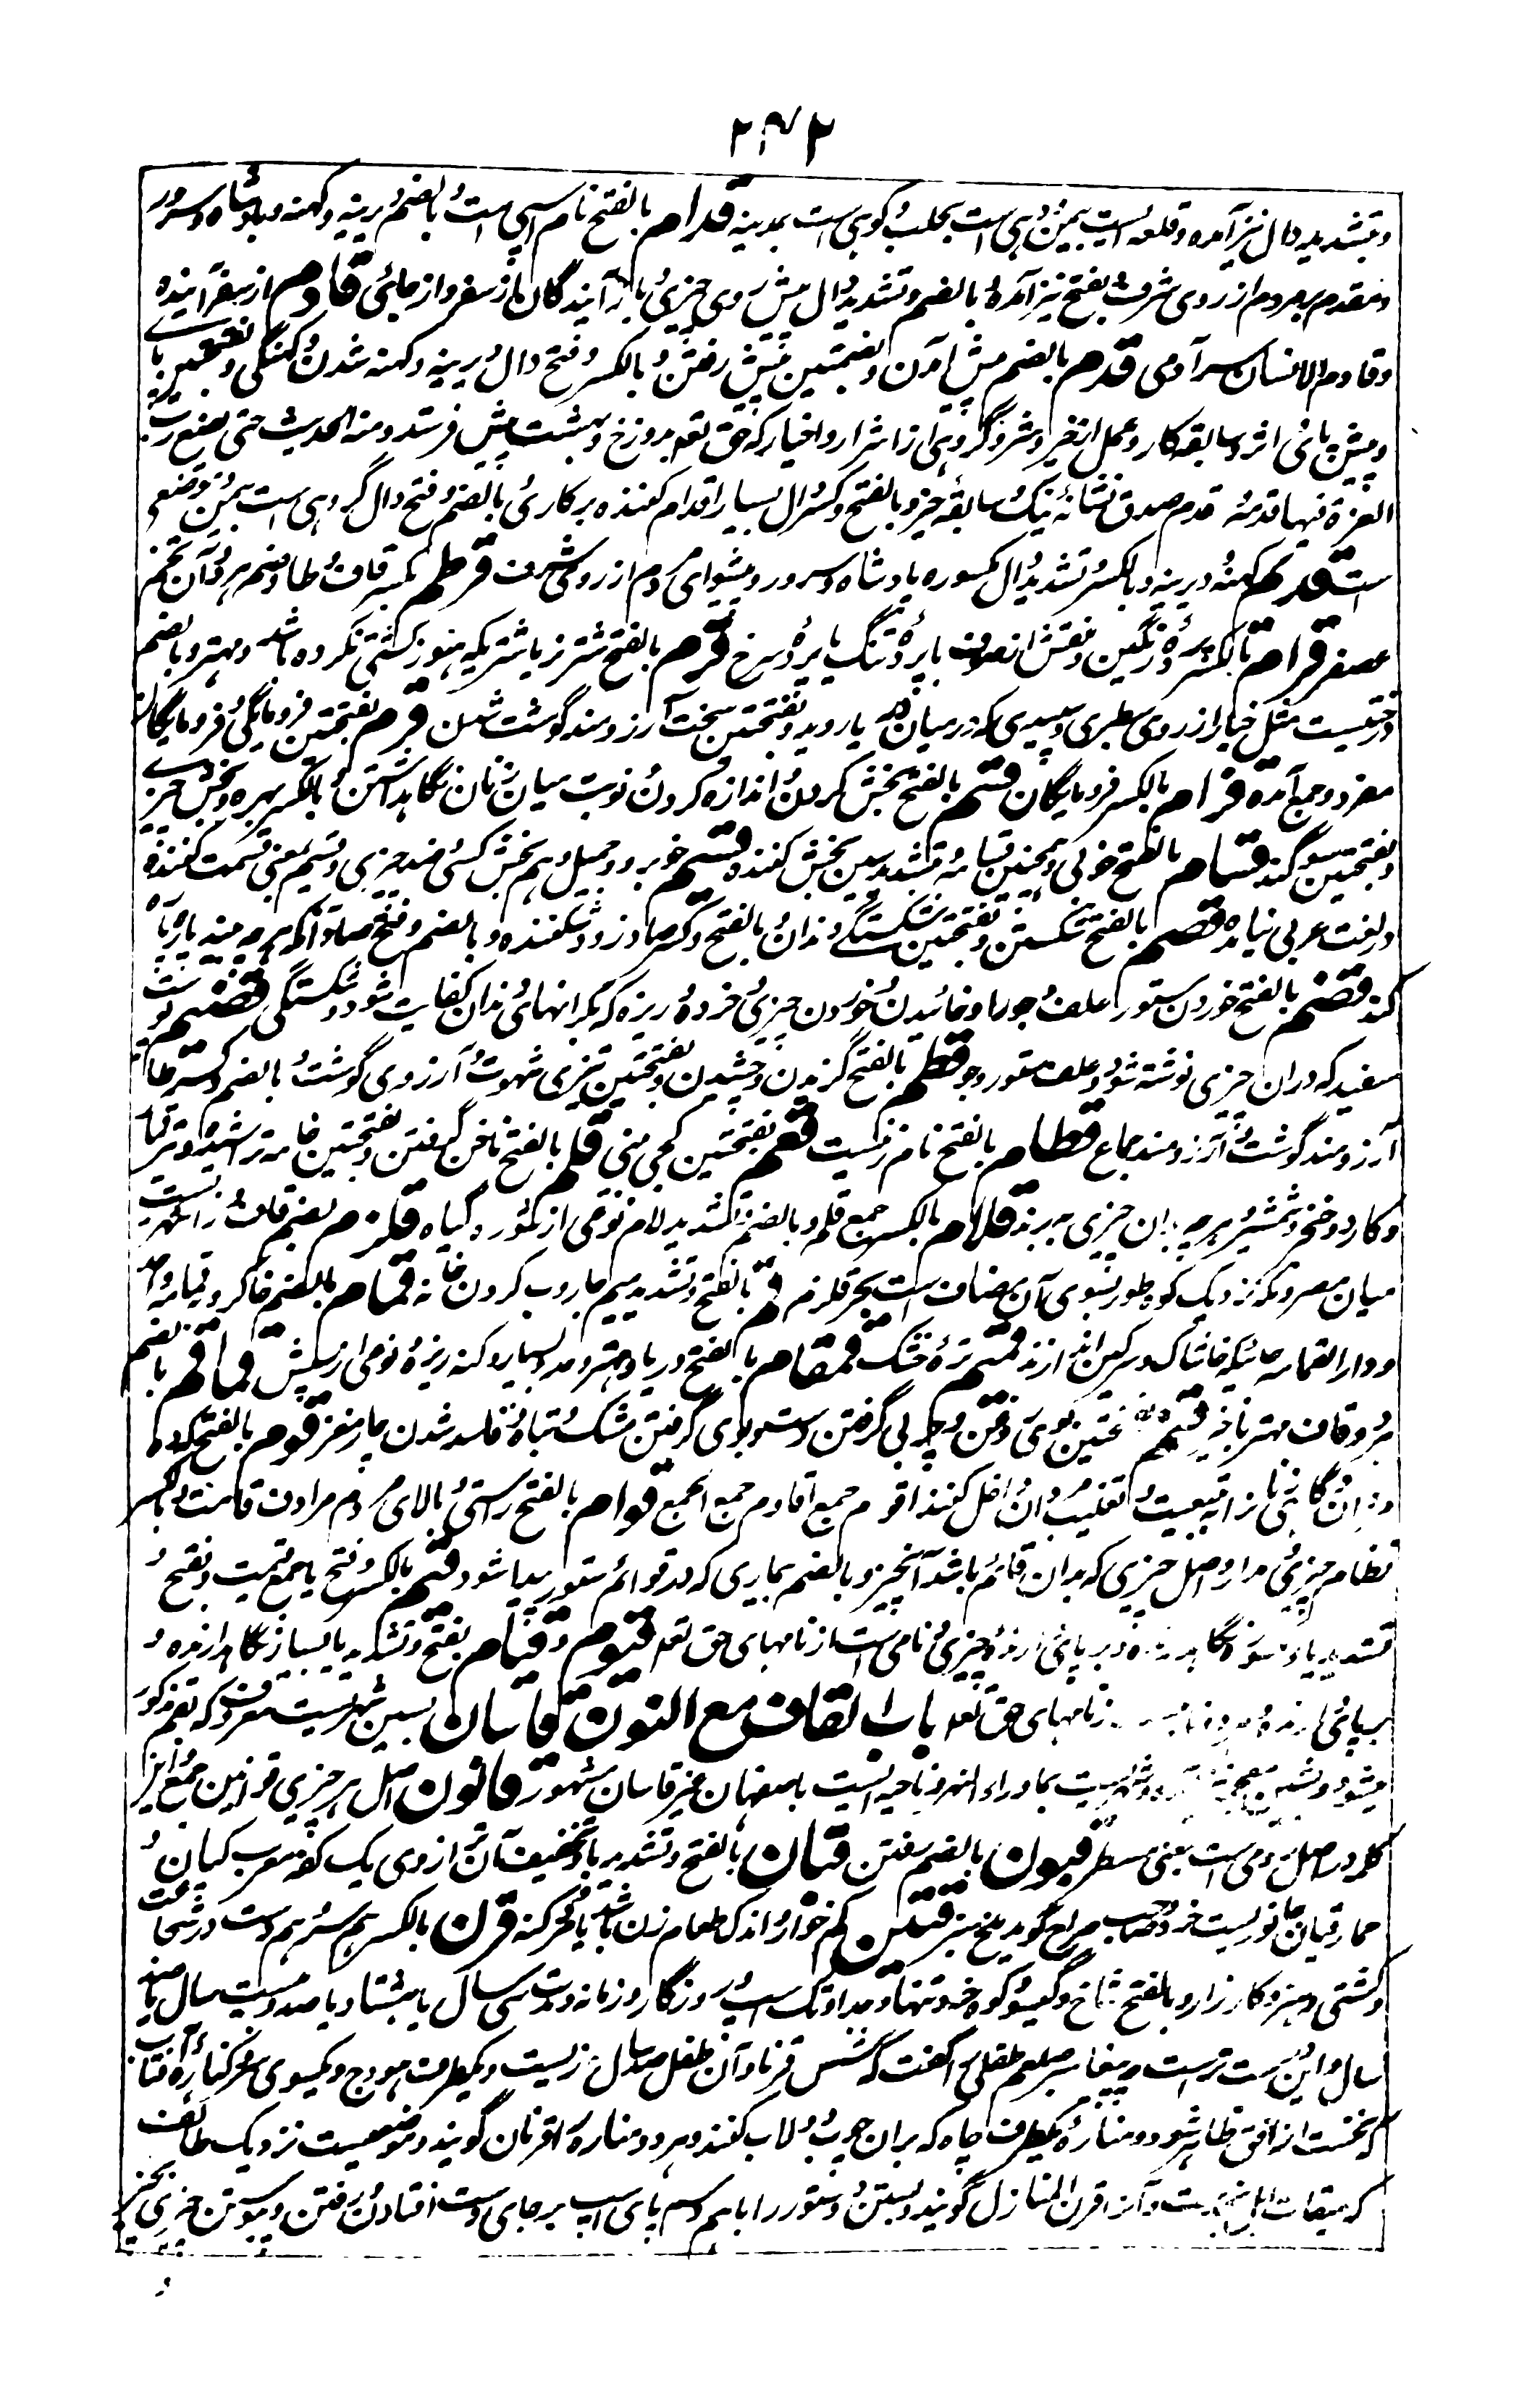 ۲۸۲
و بتشدید دال نیز آمده و قلعه ایست بیمن و دهی است بحلب و کوهی است بمدینه قدام بالفتح نام اسپی است و بالضم دیرینه و کهنه و پادشاه و سرور
و مقدم بر مردم از روی شرف و بفتح نیز آمده و بالضم و تشدید دال پیش روی چیزی و باز آیندگان از سفر و از جائی قادم از سفر آینده
و قادم الانسان سر آدمی قدم بالضم پیش آمدن و بضمتین پیش رفتن و بالکسر و فتح دال دیرینه و کهنه شدن و کهنگی و بفتحتین پای
و پیش پائی و اثر و سابقه کار و عمل از خیر و شر و گروهی از اشرار و اخیار که حق تعالی بدوزخ و بهشت پیش فرستد و منه الحدیث حتی یضع رب
العزة فیها قدمه و قدم صدق نشانه نیک و سابقه خیر و بالفتح و کسر دال بسیار اقدام کننده بر کاری و بالضم و فتح دال گروهی است بیمن و موضعی
است قدیم کهنه و دیرینه و بالکسر و تشدید دال مکسوره پادشاه و سرور و پیشوای مردم از روی شرف قرطم بکسر قاف و طا و بضم هر دو آن تخم
عصفر قرام بالکسر پرده رنگین و منقش از صوف یا پرده تنگ یا پرده سرخ قرم بالفتح شتر نر یا شتریکه هنوز کشتی نکرده باشد و مهتر و بالضم
درختیست مثل خیار از روی سطبری و سپیدی که در میان دریا روید و بفتحتین سخت آرزومند گوشت شدن قزم بفتحتین فرومایگی و فرومایگان
مفرد و جمع آمده قزام بالکسر فرومایگان قسم بالفتح بخش کردن و اندازه کردن و نوبت میان زنان نگاهداشتن و بالکسر بهره و بخش چیزے
و بفتحتین سوگند قسام بالفتح خوبی و همچنین قسامه و بتشدید سین بخش کننده قسیم خوبرو و جمیل و هم بخش کسی در چیزی و قسیم بمعنی قسمت کننده
در لغت عربی نیامده قصم بالفتح شکستن و بفتحتین شکستگی دندان و بالفتح و کسر صاد زود شکننده و بالضم و فتح صاد آنکه هر چه بیند پاره پاره
کند قضم بالفتح خوردن ستور علف و جو را و خائیدن و خوردن چیزی خرد و ریزه که بکرانهای دندان کفایت شود و شکستگی قضیم پوست
سفید که دران چیزی نوشته شود و علف ستور و جو قطم بالفتح گزیدن و چشیدن و بفتحتین تیزی شهوت و آرزوی گوشت و بالضم و کسر طا
آرزومند گوشت و آرزومند جماع قطام بالفتح نام زنیست قعم بفتحتین کجی بینی قلم بالفتح ناخن گرفتن و بفتحتین خامه تراشیده و تیر قمار
و کارد و خنجر و شمشیر و هر چه بدان چیزی ببرند قلام بالکسر جمع قلم و بالضم و تشدید لام نوعی از شوره گیاه قلزم بضم قاف و زا شهریست
میان مصر و مکه نزدیک کوه طور و بسوی آن مضاف است بحر قلزم قم بالفتح و تشدید میم جاروب کردن خانه قمام بالضم خاکروبه قمامه واحد
و دار القمامه جائیکه خاشاک و سرگین اندازند قمیم تره خشک قمقام بالفتح دریا و مهتر و عدد بسیار و کنه ریزه و نوعی از سپش قماقم بالضم
هر دو قاف مهتر ناخیه قنم بفتحتین بوی روغن و چربی گرفتن دست و بوی گرفتن مشک و تباه و فاسد شدن چارمغز قوم بالفتح گروه
مردان و گاهی زنان را به تبعیت و تغلیب دران داخل کنند اقوام جمع اقاوم جمع الجمع قوام بالفتح راستی و بالای مردم مرادف قامت و بالکسر
نظام چیزی و مدار و اصل چیزی که بدان قائم باشد آنچیز و بالضم بیماری که در قوائم ستور پیدا شود قیم بالکسر و فتح یا جمع قیمت و بفتح و
تشدید یا راست و نگاهدارنده و برپای دارنده چیزی و نامی است از نامهای حق تعالی قیوم و قیام بفتح و تشدید یا بسیار نگاهدارنده و
برپای دارنده نامهای حق تعالی باب القاف مع النون قاسان بسین شهریست معروف که بقم مذکور
میشود و بشین معجمه شهریست بماوراء النهر و ناحیه ایست باصفهان غیر قاسان مشهور قانون اصل هر چیزی قوانین جمع و این
کلمه در اصل رومی است بمعنی مسطر قبون بالضم رفتن قبان بالفتح و تشدید با و تخفیف آن ترازوی یک کفه معرب کپان و
حمار قبان جانوریست خرد و صاحب صراح گوید ملخ سبز قتین کم خوار و اندک طعام زن باشد یا مرد کنه قرن بالکسر همسر و هم دست در شجاعت
و کشتی و هنر و کارزار و بالفتح شاخ و گیسو و کوه خرد و تنها و جدا و تک اسپ و روزگار و زمانه و مدت سی سال یا هشتاد یا صد و بیست سال یا صد
سال و این درست ترست چه پیغامبر صلعم طفلی را گفت که عش قرنا و آن طفل صد سال زیست و یکطرف هودج و یکسوی سر و کناره آفتاب
که نخست از افق ظاهر شود و مناره یکطرف چاه که بران چوب دولاب کنند و هر دو مناره را قرنان گویند و موضعیست نزدیک طائف
که میقات اهل نجدست و آنرا قرن المنازل گویند و بستن دو ستور را باهم و سم پای اسپ بر جای دست افتادن در رفتن و پیوستن چیزی بچیزی